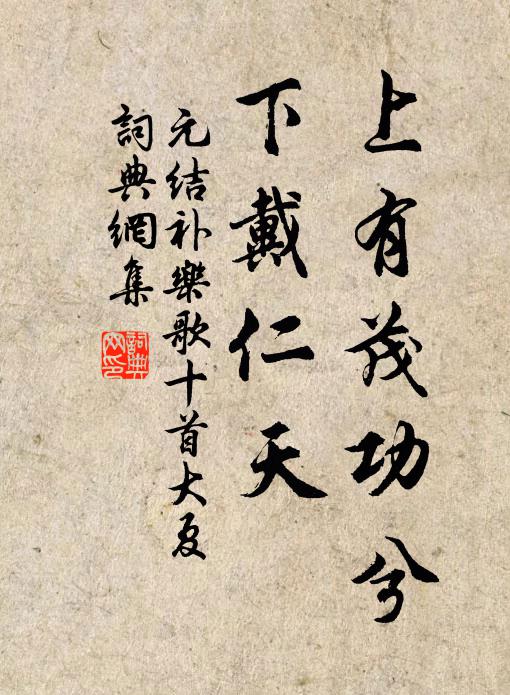 上有茂功兮
下戴仁天
元结补樂歌十首大夏
詞典網集
詞典
网印